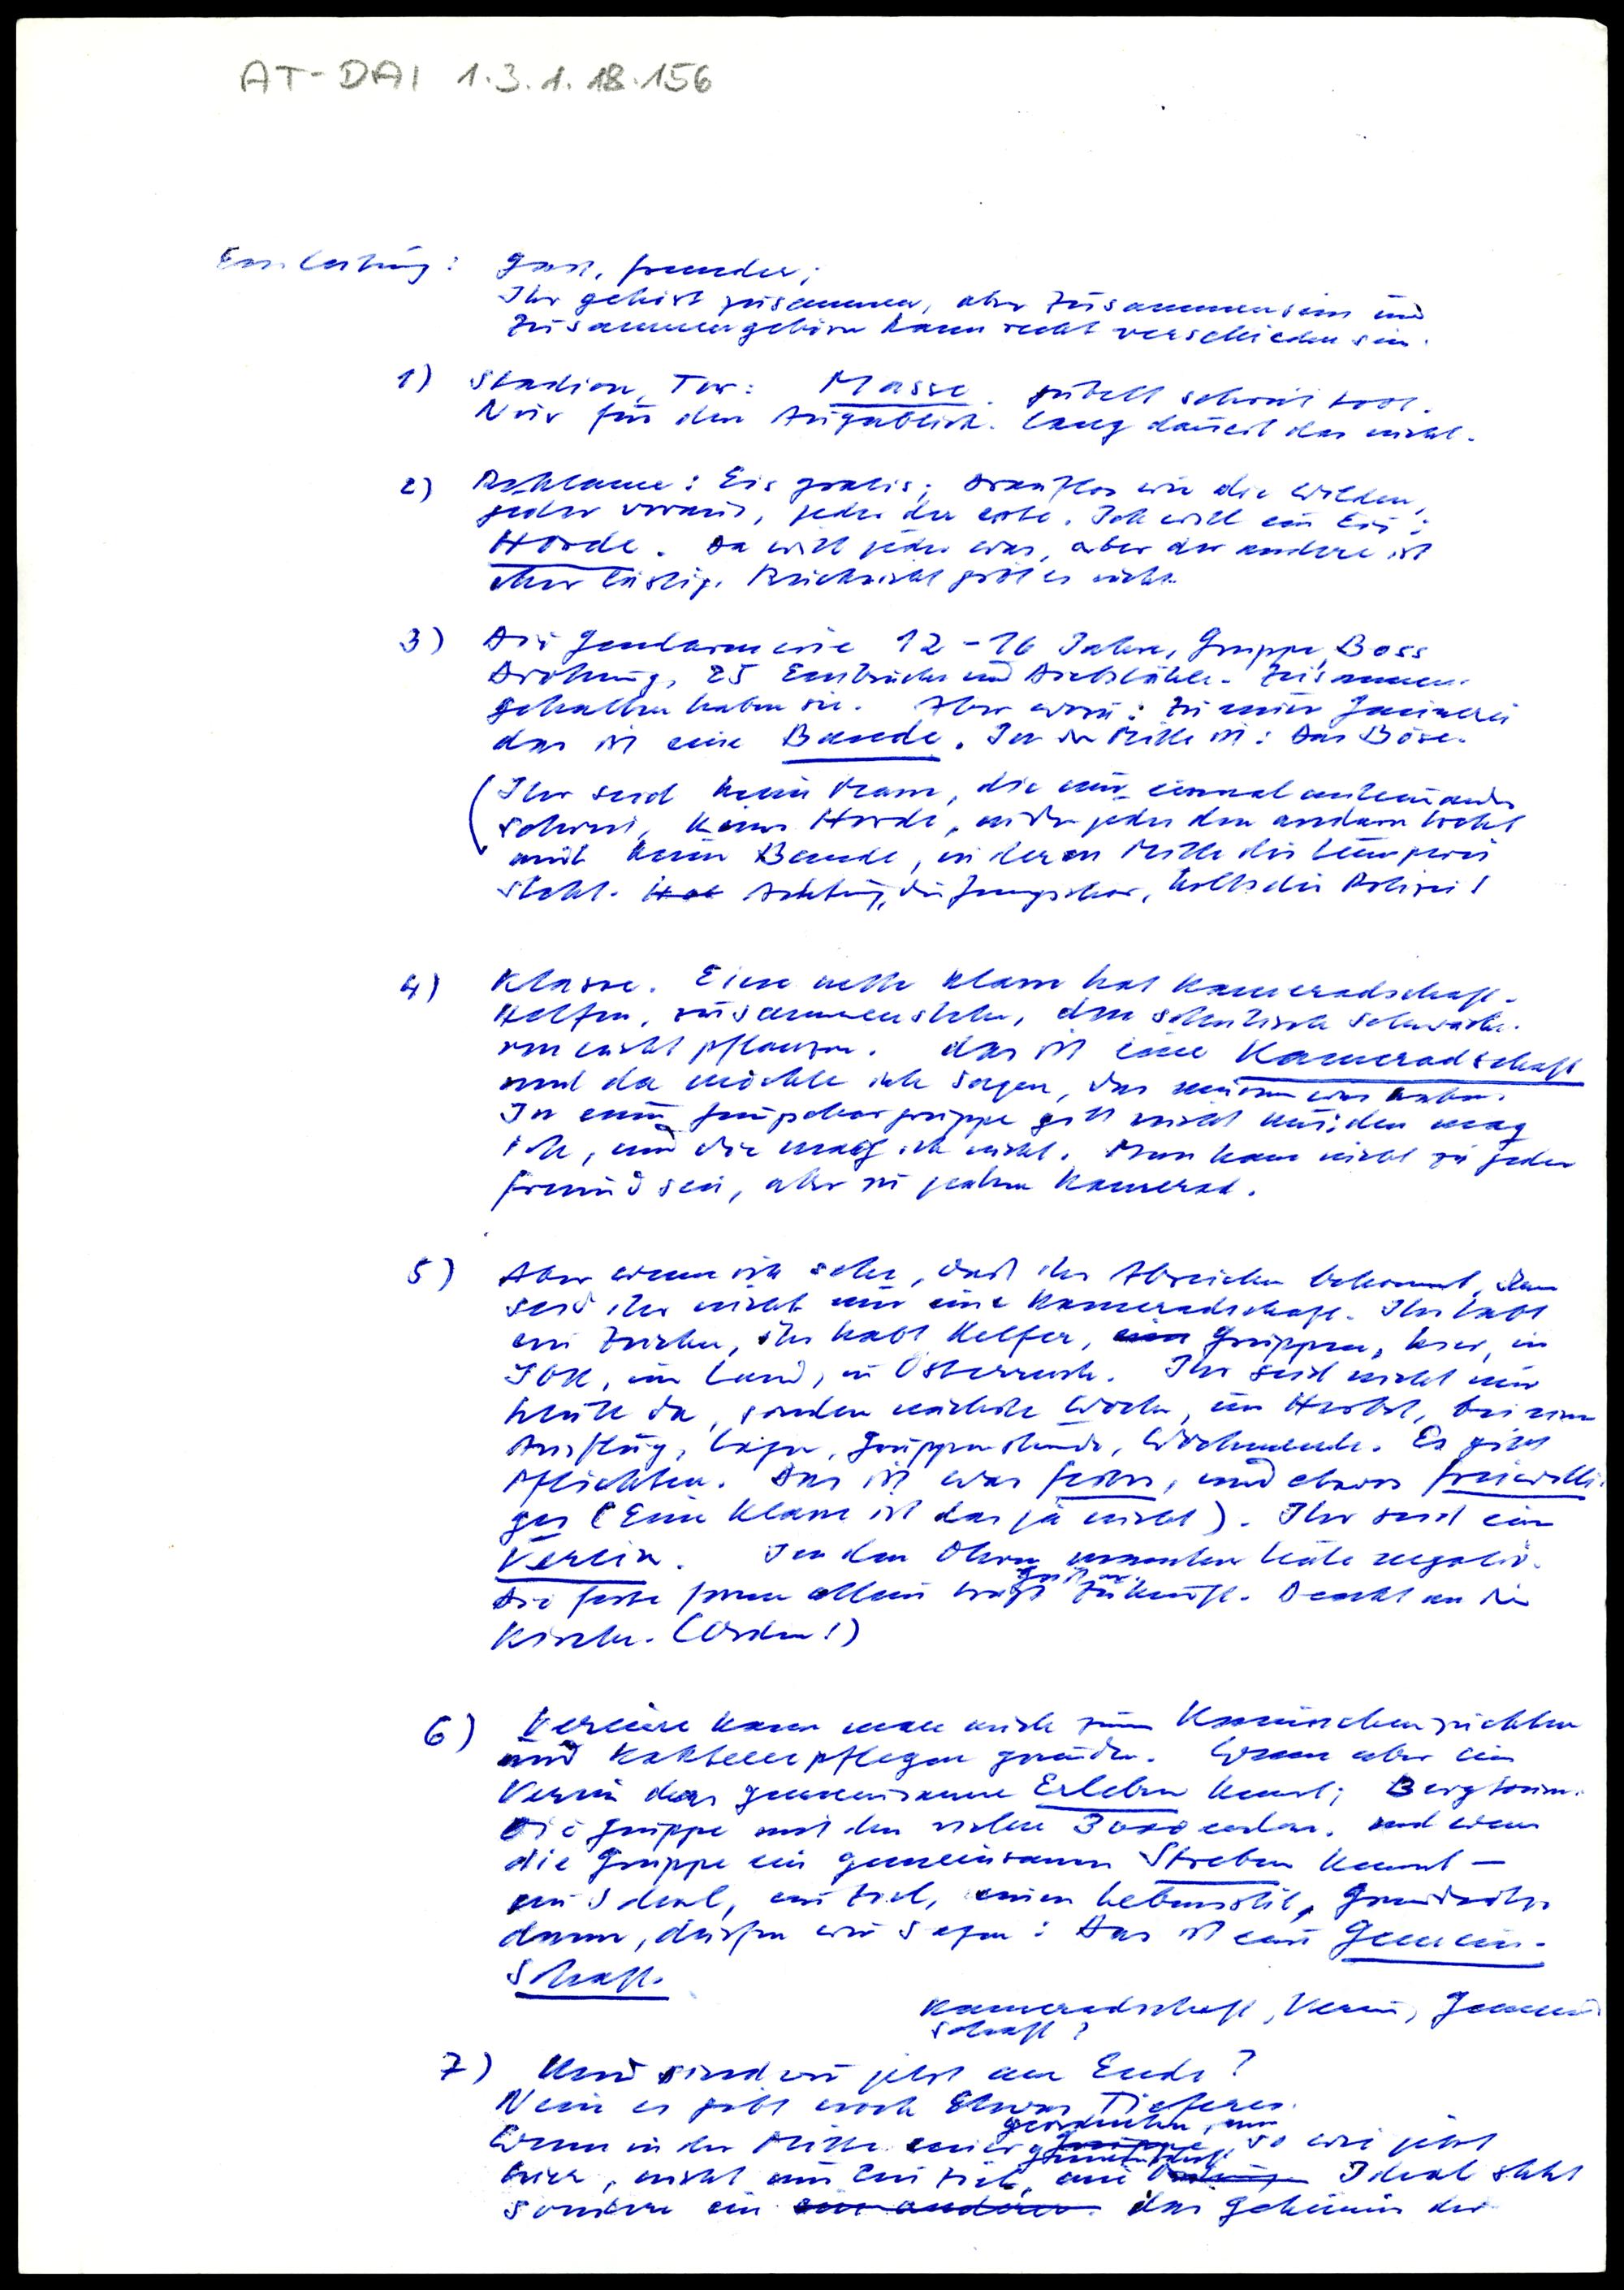 AT-DAI 1.3.1.18.156
Einleitung: Gast, fremder;
Ihr gehört zusammen, aber Zusammensein und
Zusammengehören kann recht verschieden sein.
1) Stadion, Tor: Masse. jubelt schreit tobt.
Nur für den Augenblick. Lang dauert das nicht.
2) Reklame: Eis gratis; drauflos wie die Wilden,
jeder voraus, jeder der erste. Ich will ein Eis:
Horde. Da will jeder was, aber der andere ist
eher lästig. Rücksicht gibt es nicht.
3) Die Gendarmerie 12-16 Jahre, Gruppe, Boss
Drohung, 25 Einbrüche und Diebstähle. Zusammen-
gehalten haben sie. Aber wozu: Zu einer Gaunerei
das ist eine Bande. In der Mitte ist: Das Böse.
(Ihr seid keine Masse, die nur einmal miteinander
schreit, keine Horde, in der jeder den andern
und keine Bande, in deren Mitte die Lumperei
steht. Achtung, die Jungschar, holt die Polizei!
4) Klasse. Eine nette Klasse hat Kameradschaft.
Helfen, zusammenstehen, den schulisch Schwäche-
ren nicht pflanzen. das ist eine Kameradschaft
und da möchte ich sagen, das müssen wir haben.
In einer Jungschargruppe gilt nicht nur: den mag
ich, und die mag ich nicht. Man kann nicht zu jedem
Freund sein, aber zu jedem Kamerad.
5) Aber wenn ich sehe, daß ihr Abzeichen bekommt, dann
seid ihr nicht nur eine Kameradschaft. Ihr habt
ein Zeichen, ihr habt Helfer, Gruppen, hier, in
Ibk, im Land, in Österreich. Ihr seid nicht nur
heute da, sondern nächste Woche, im Herbst, bei einem
Ausflug, Lager, Gruppenstunde, Wochenende. Es gibt
Pflichten. Das ist was festes, und etwas freiwilli-
ges (Eine Klasse ist das ja nicht). Ihr seid ein
Verein. In den Ohren mancher Leute negativ.
Die feste Form allein trägt Zukunft. Denkt an die
Kirche. (Orden!)
6) Vereine kann man auch zum Kaninchenzüchten
und Kakteenpflegen gründen. Wenn aber ein
Verein das gemeinsame Erleben kennt; Bergtouren.
Die Gruppe mit den vielen 3000endern. und wenn
die Gruppe ein gemeinsames Streben kennt –
ein Ideal, ein Ziel, einen Lebensstil, Grundsätze
dann, dürfen wir sagen: Das ist eine Gemein-
schaft.
Kameradschaft, Verein, Gemein
schaft?
7) Und sind wir jetzt am Ende?
Nein es gibt noch Etwas Tieferes.
geordneten, um
Wenn in der Mitte einer Gruppe, so wie jetzt
Gemeinschaft
hier, nicht nur ein Ziel, ein Ideal steht
sondern ein ein anderer das Geheimnis des